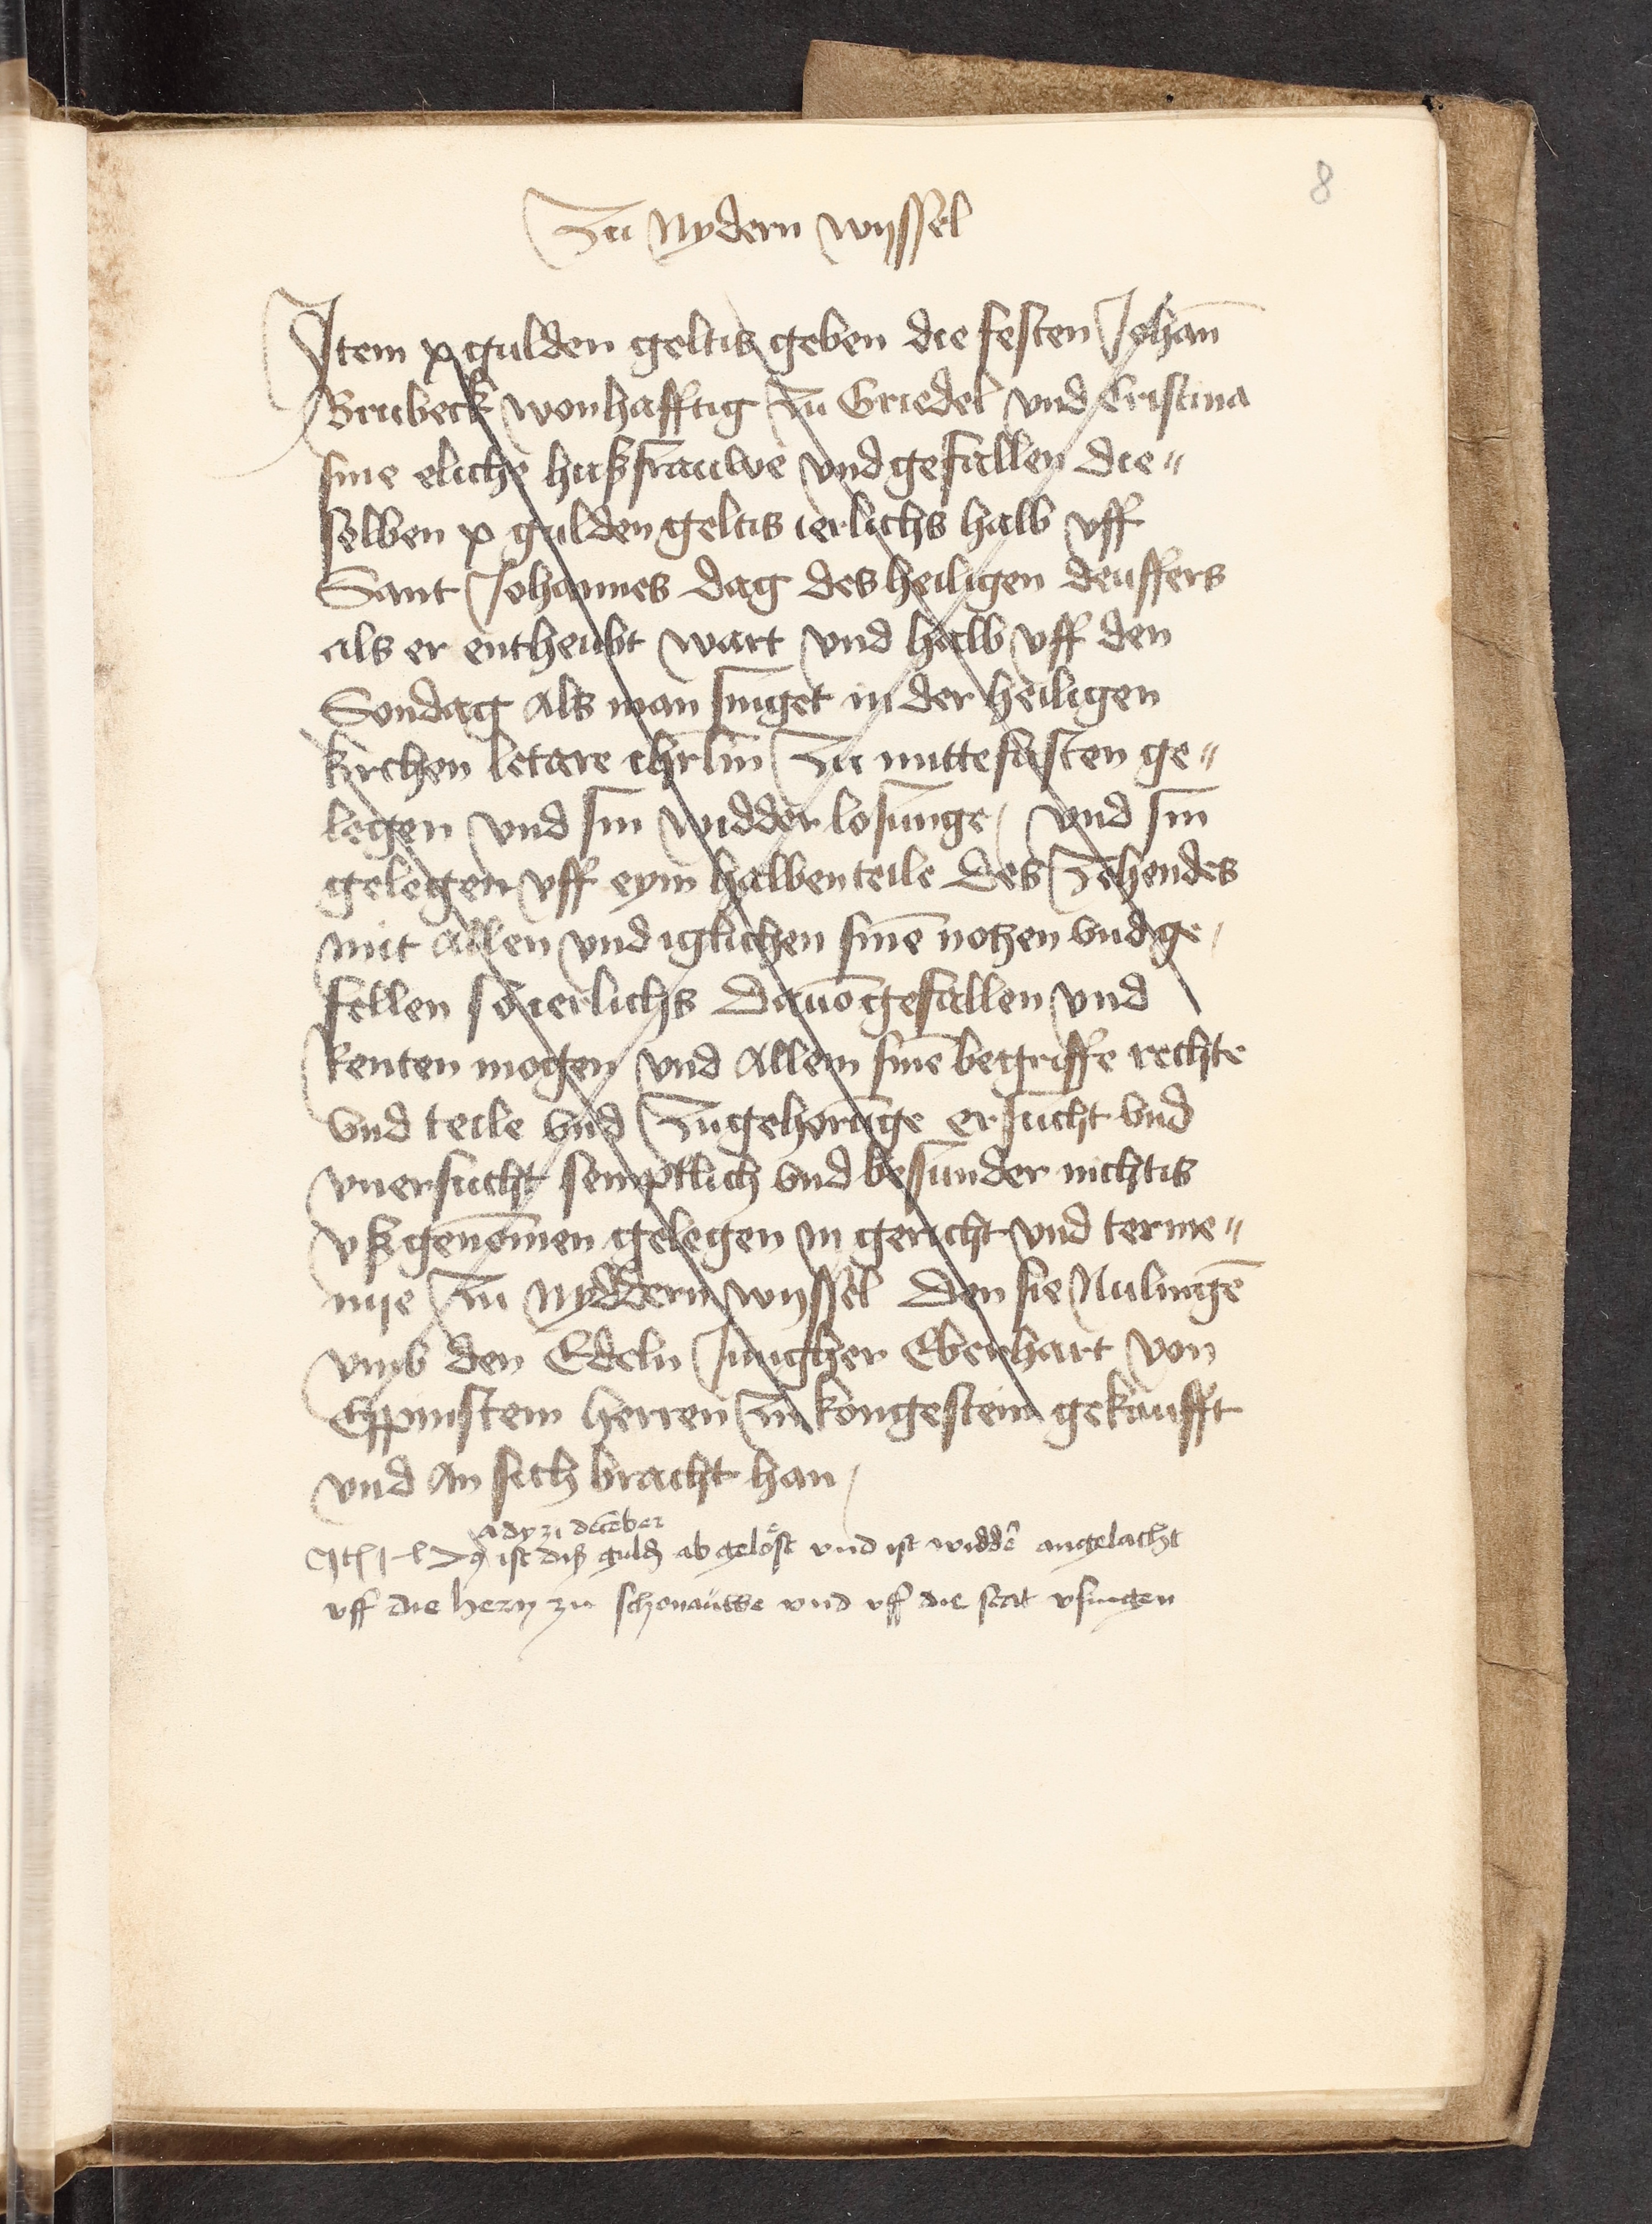 8
Zu Nydern wyssel
Item x gulden geltis geben die festen Johan̅
Brubeck wonhafftig zu Griedel vnd Cristina
sine eliche hußfrauwe vnd gefallen die〃
selben x gulden geltis ierlichs halb vff
Sant Johannes dag des heiligen deuffers
als er entheubt wart vnd halb vff den
Sondag als man singet in der heiligen
kirchen letare ihrl̅m zu mittefasten ge〃
legen vnd sin widder losunge / vnd sin
gelegen vff eym halben teile des Zehendes
mit allen vnd iglichen sine̅ notzen vnd ge /
fellen so ierlichs dauo̅ gefallen vnd
kenten mogen vnd allem sine̅ begriffe rechte
vnd teile vnd Zugehorunge ersucht vnd
vnersucht semptlich vnd besunder nichtis
vßgenomen gelegen in gericht vnd terme〃
nije zu Nyddern wyssel den sie Nulinge̅
vmb den Edeln Jungher Eberhart von
Eppinstein herren zu kongestein gekaufft
vnd an sich bracht han /
ady 21 dece̅ber
ist diß guld ab gelost vnd ist widde̅ angelacht
vff die hern zu schonauwe vnd vff die stat vsingen